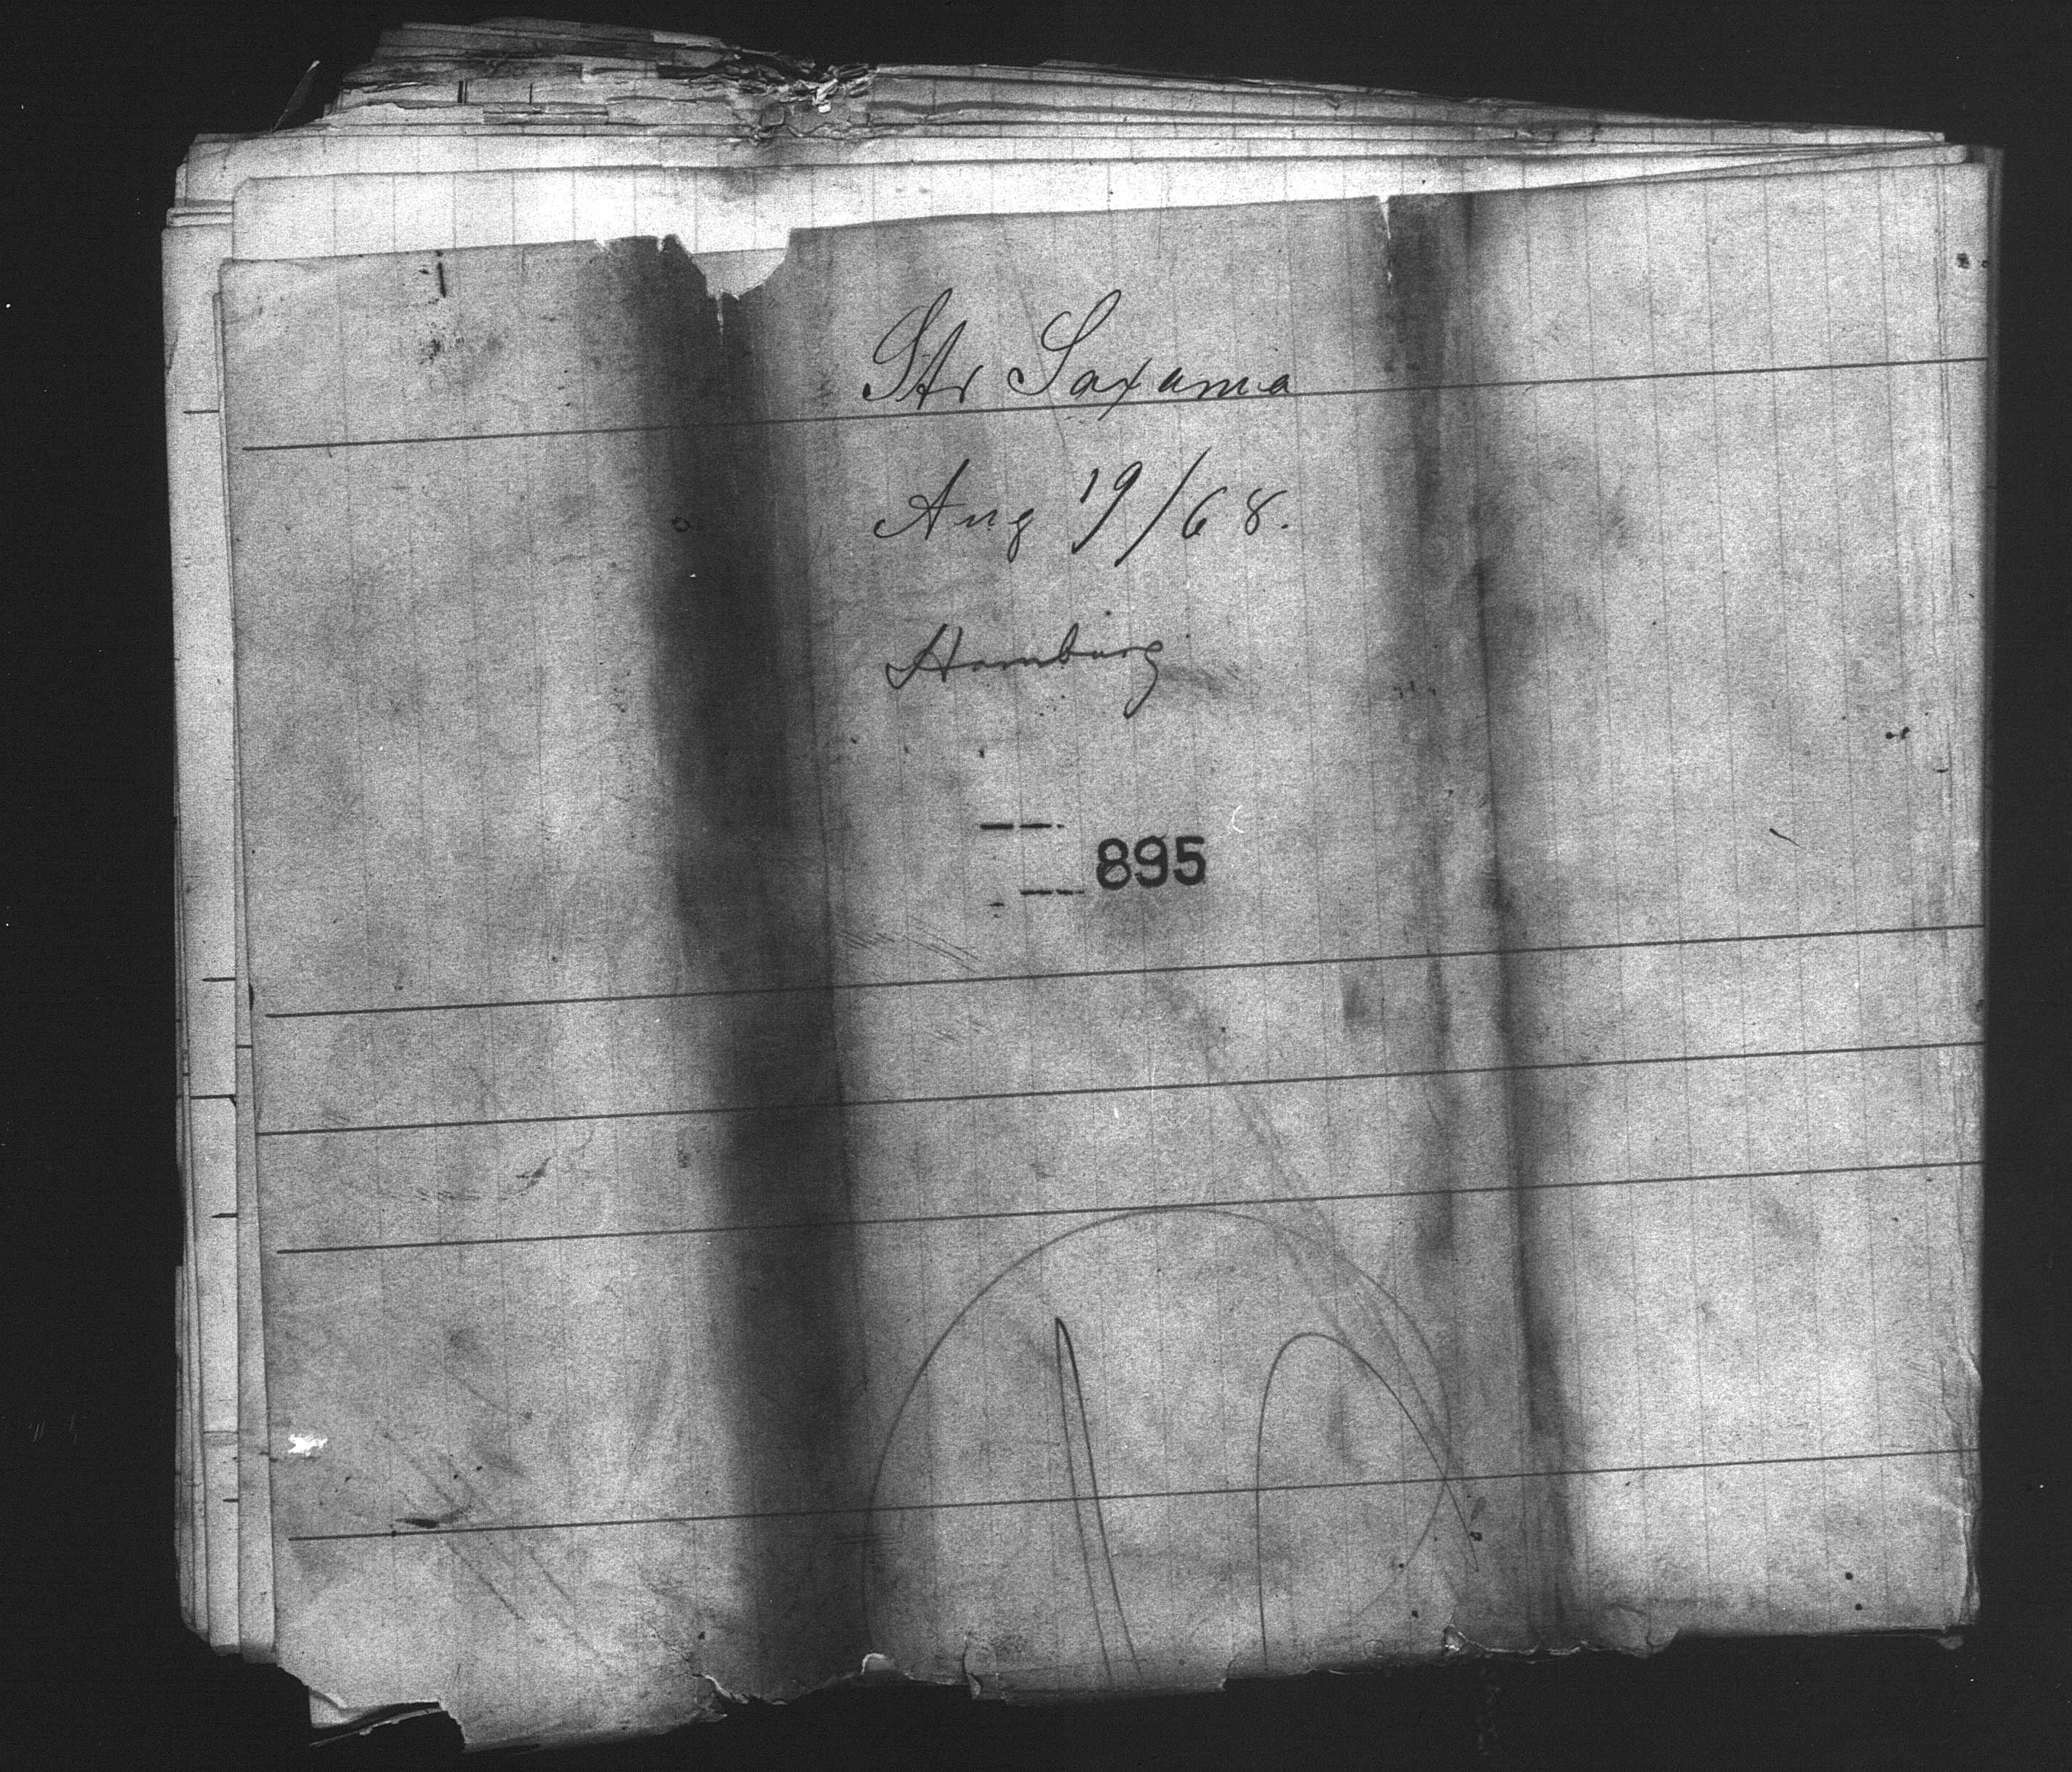 Str Saxonia
Aug 19/68.
Hamburg
895